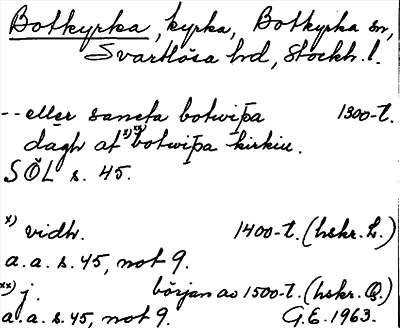 Botkyrka, kyrka, Botkyrka sn,
Svartlösa hd, Stockh. l.
-- eller sancta botwiþa 1300-t.
dagh at x) xx) botwiþa kirkiu.
SÖL s. 45.
x) vidh. 1400-t. (hskr. L.)
a.a. s. 45, not 9.
xx) j. början av 1500-t. (hskr. Q.)
a.a. s. 45, not 9. G.E. 1963.